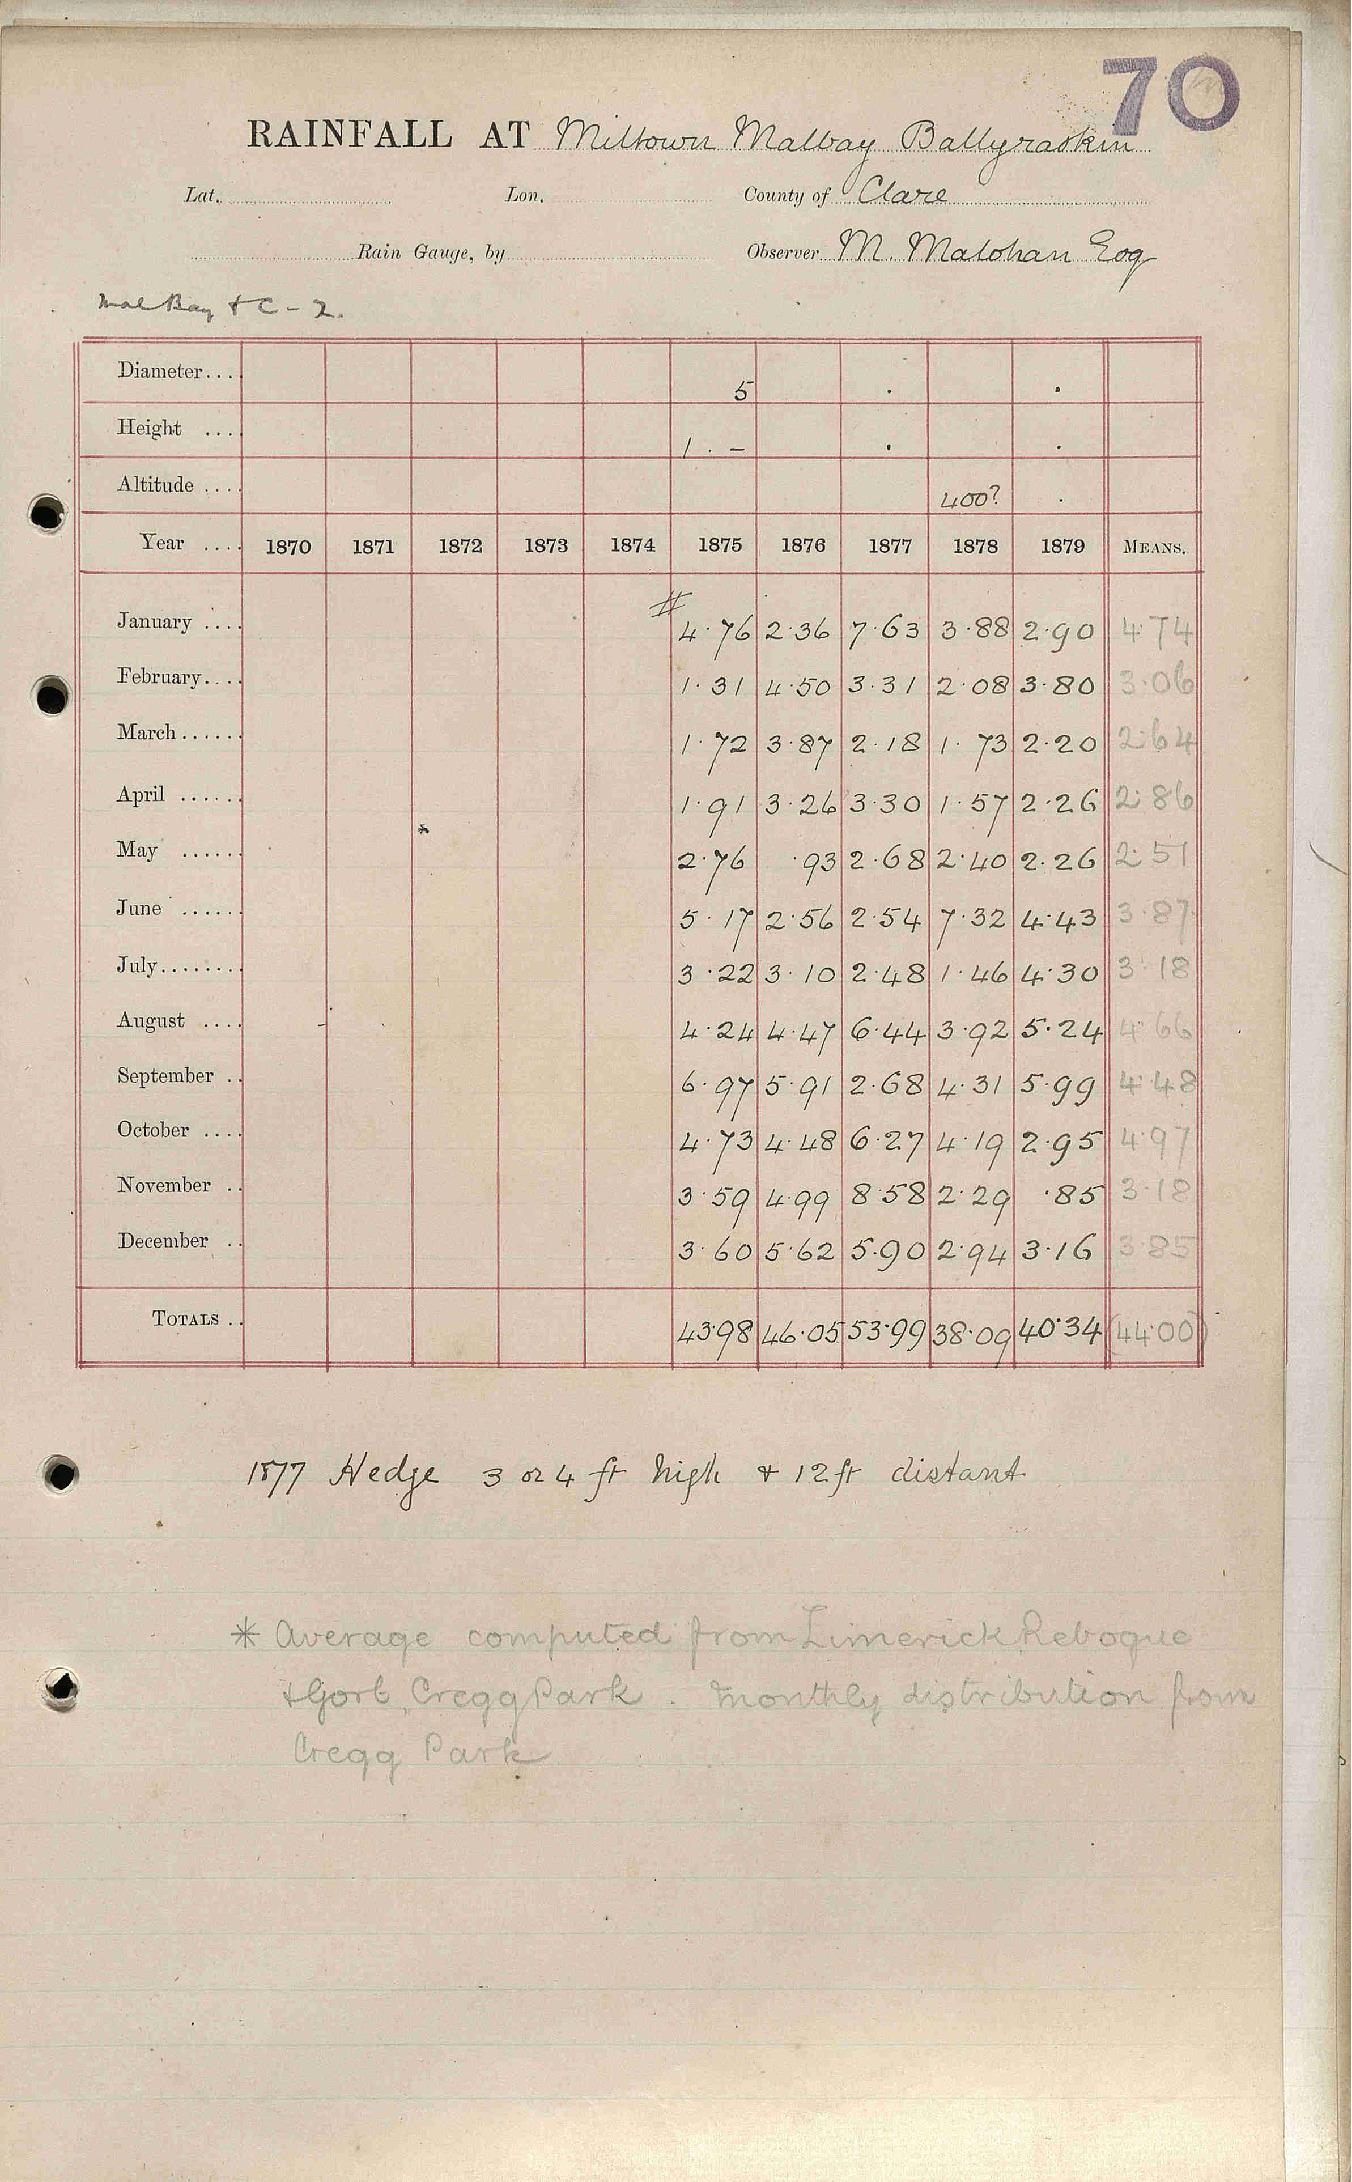 70
RAINFALL AT Miltown Malbay Ballyraskin
Lat. Lon. County of Clare
Rain Gauge, by Observer M. Malohan Esq
Mal Bay & C - 2.
Diameter... 5 . .
Height ... 1 . - . .
Altitude .... 400? .
Year .... 1870 1871 1872 1873 1874 1875 1876 1877 1878 1879 MEANS.
January .... # 4.76 2.36 7.63 3.88 2.90 4.74
February.... 1.31 4.50 3.31 2.08 3.80 3.06
March...... 1.72 3.87 2.18 1.73 2.20 2.64
April ...... 1.91 3.26 3.30 1.57 2.26 2.86
May ...... 2.76 .93 2.68 2.40 2.26 2.51
June ...... 5.17 2.56 2.54 7.32 4.43 3.87
July........ 3.22 3.10 2.48 1.46 4.30 3.18
August .... 4.24 4.47 6.44 3.92 5.24 4.66
September .. 6.97 5.91 2.68 4.31 5.99 4.48
October .... 4.73 4.48 6.27 4.19 2.95 4.97
November .. 3.59 4.99 8.58 2.29 .85 3.18
December .. 3.60 5.62 5.90 2.94 3.16 3.85
TOTALS .. 43.98 46.05 53.99 38.09 40.34 (44.00)
1877 Hedge 3 or 4 ft high & 12 ft distant
* Average computed from Limerick Rebogue
& Gort, Cregg Park . Monthly distribution from
Cregg Park